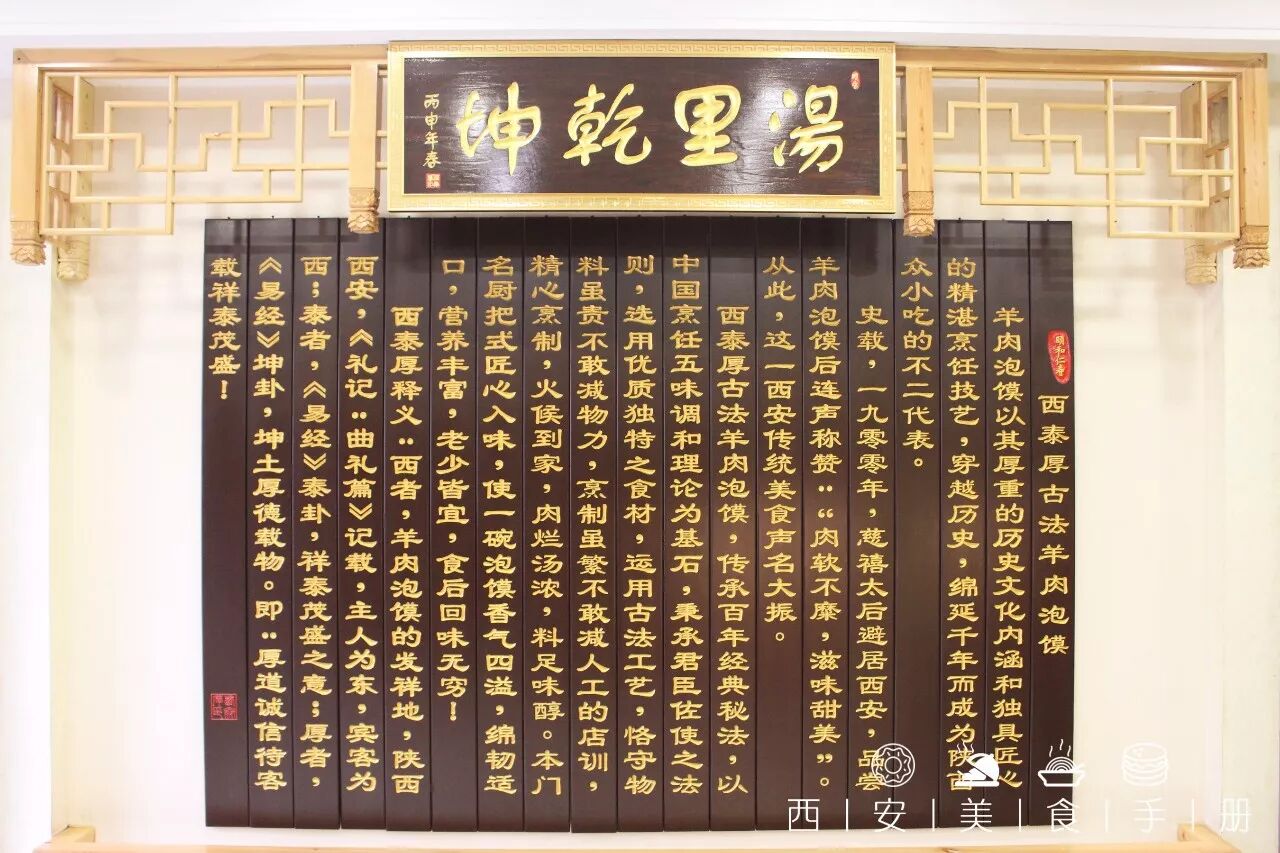 湯里乾坤
丙申年春
西泰厚古法羊肉泡馍
羊肉泡馍以其厚重的历史文化内涵和独具匠心
的精湛烹饪技艺，穿越历史，绵延千年而成为陕西
众小吃的不二代表。
史载，一九零零年，慈禧太后避居西安，品尝
羊肉泡馍后连声称赞：“肉软不糜，滋味甜美”。
从此，这一西安传统美食声名大振。
西泰厚古法羊肉泡馍，传承百年经典秘法，以
中国烹饪五味调和理论为基石，秉承君臣佐使之法
则，选用优质独特之食材，运用古法工艺，恪守物
料虽贵不敢减物力，烹制虽繁不敢减人工的店训，
精心烹制，火候到家，肉烂汤浓，料足味醇。本门
名厨把式匠心入味，使一碗泡馍香气四溢，绵韧适
口，营养丰富，老少皆宜，食后回味无穷！
西泰厚释义：西者，羊肉泡馍的发祥地，陕西
西安，《礼记：曲礼篇》记载，主人为东，宾客为
西；泰者，《易经》泰卦，祥泰茂盛之意；厚者，
《易经》坤卦，坤土厚德载物。即：厚道诚信待客
载祥泰茂盛！
西|安|美|食|手|册